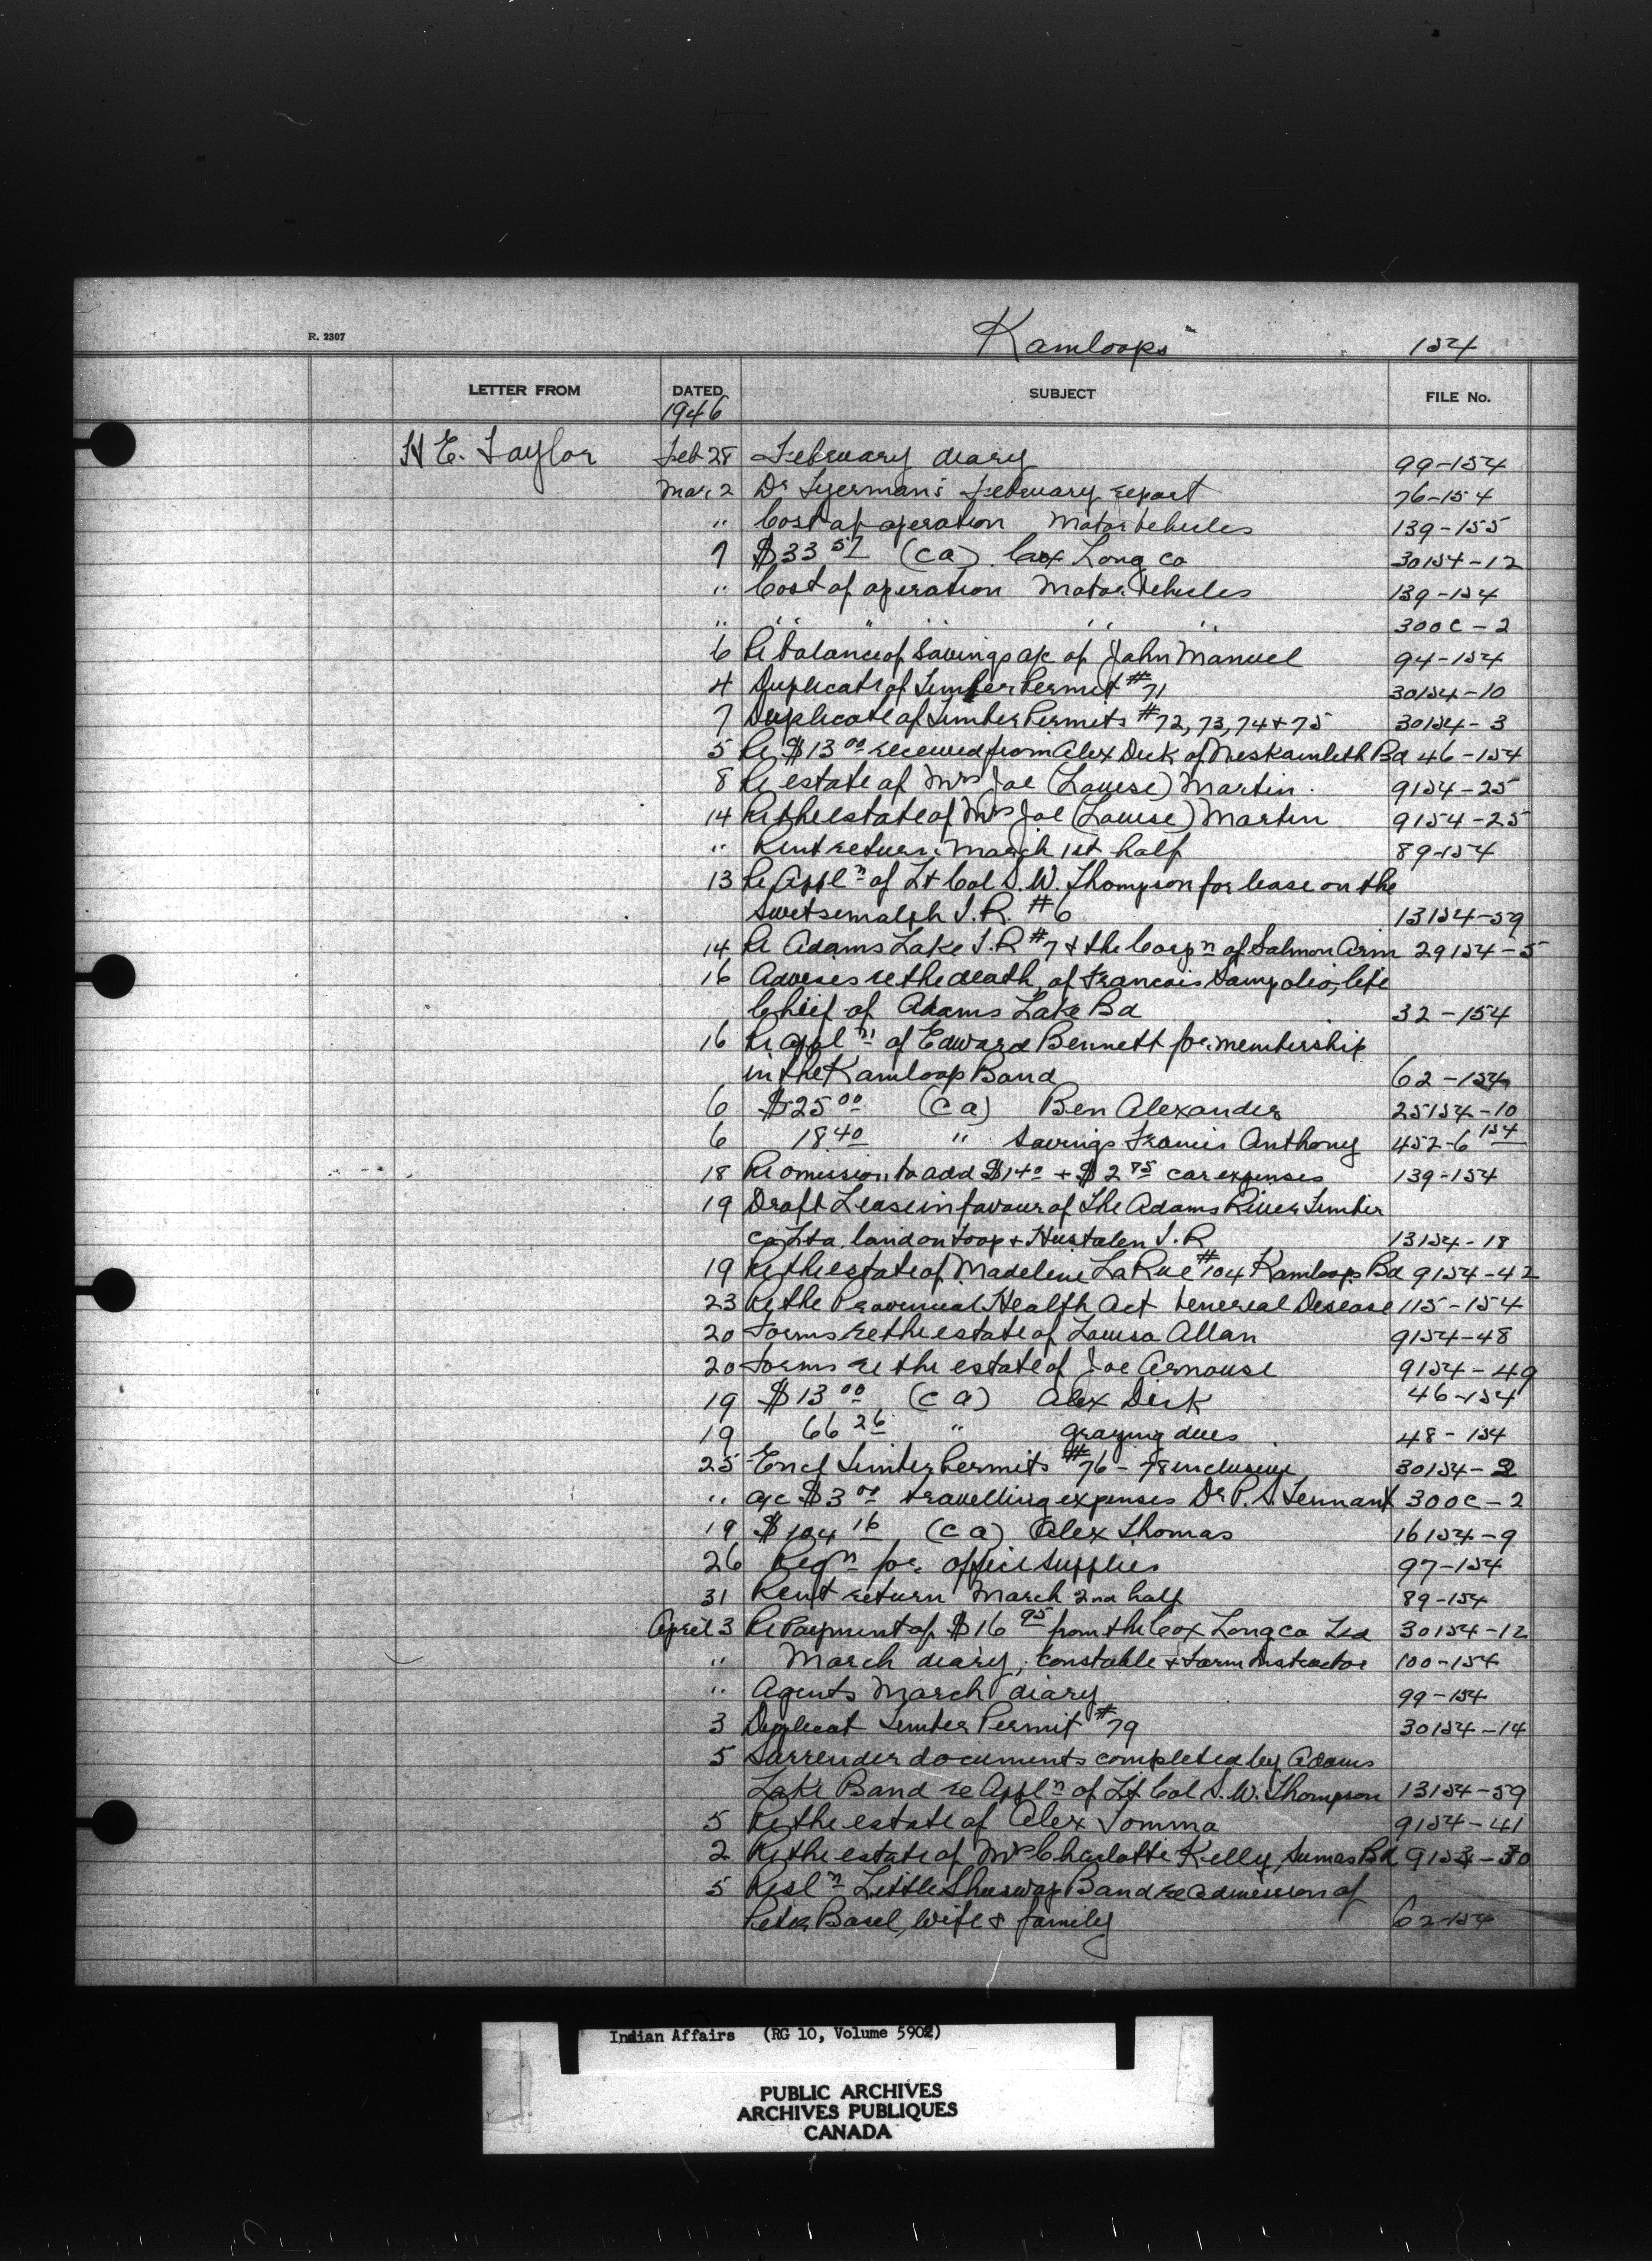 R. 2307 Kamloops 154
LETTER FROM DATED SUBJECT FILE No.
1946
H E. Taylor Feb 28 February diary 99-154
Mar. 2 Dr February report 76-154
" Cost of operation Motor Vehicles 139-155
7 $33 57 (ca) Cox Long Co 30154-12
" Cost of operation Motor Vehicles 139-154
" " " " " " 300C-2
6 Re balance of Savings a/c of John Manuel 94-154
4 Duplicate of Timber Permit #71 30154-10
7 Duplicate of Timber Permits #72, 73, 74 + 75 30154-3
5 Re $13 00 received from Alex Dick of Neskainleth Bd 46-154
8 Re estate of Mrs Joe (Louise) Martin. 9154-25
14 Re the estate of Mrs Joe (Louise) Martin 9154-25
" Rent return March 1st half 89-154
13 Re Appln of Lt Col S. W. Thompson for lease on the
Switsemalph I.R. #6 13154-59
14 Re Adams Lake I.R #7 + the Corpn of Salmon Arm 29154-5
16 Advises re the death of Francois Sampolio, life
Chief of Adams Lake Bd 32-154
16 Re appln of Edward Bennett for membership
in the Kamloop Band 62-154
6 $25 00 (ca) Ben Alexander 25154-10
6 18 40 " Savings Francis Anthony 452-6 154
18 Re omission to add $1 40 + $2 85 car expenses 139-154
19 Draft Lease in favour of The Adams River Timber
Co Ltd. land on Toop + Hustalen I.R 13154-18
19 Re the estate of Madeline LaRue #104 Kamloops Bd 9154-42
23 Re the Provincial Health Act Venereal Disease 115-154
20 Forms re the estate of Louisa Allan 9154-48
20 Forms re the estate of Joe Arnouse 9154-49
19 $13 00 (ca) Alex Dick 46-154
19 66 26 " grazing dues 48-154
25 Encl Timber Permits #76-78 inclusive 30154-2
" a/c $3 00 travelling expenses Dr P. S. Tennant 300C-2
19 $104 16 (ca) Alex Thomas 16154-9
26 Reqn for office supplies 97-154
31 Rent return March 2nd half 89-154
April 3 Re Payment of $16 95 from the Cox Long Co Ltd 30154-12
" March diary, Constable + Farm Instructor 100-154
" Agents March diary 99-154
3 Duplicat Timber Permit #79 30154-14
5 Surrender documents completed by Adams
Lake Band re Appln of Lt Col S. W. Thompson 13154-59
5 Re the estate of Alex Tomma 9154-41
2 Re the estate of Mrs Charlotte Kelly, Sumas Bd 9153-30
5 Resln Little Shuswap Band re admission of
Peter Basil, wife & family 62-154
Indian Affairs (RG 10, Volume 5902)
PUBLIC ARCHIVES
ARCHIVES PUBLIQUES
CANADA